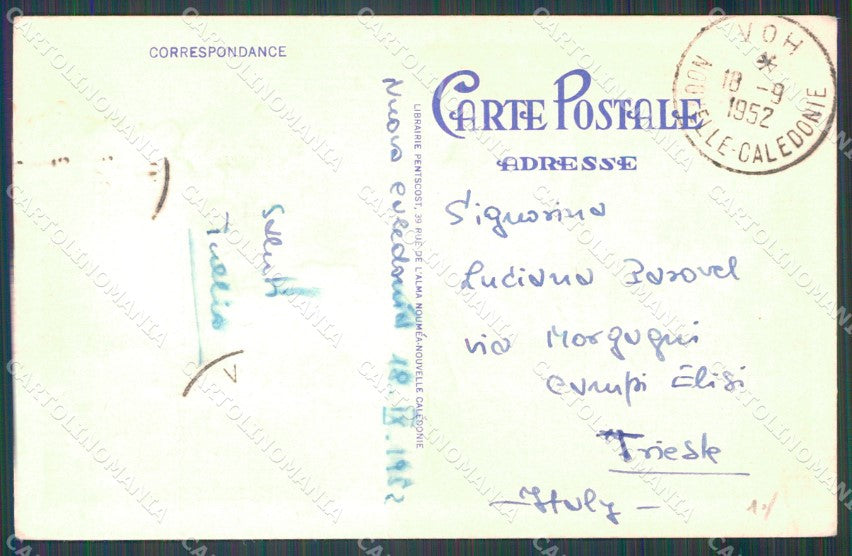 CORRESPONDANCE
CARTE POSTALE
ADRESSE
VOH
18 -9
1952
NOUVELLE-CALEDONIE
LIBRAIRIE PENTSCOST, 39 RUE DE L'ALMA NOUMÉA-NOUVELLE CALÉDONIE
Nuova Caledonia 18.IX.1952
Saluti
Tullio
Signorina
Luciana Parovel
via Morgagni
campi Elisi
Trieste
- Italy -
CARTOLINOMANIA